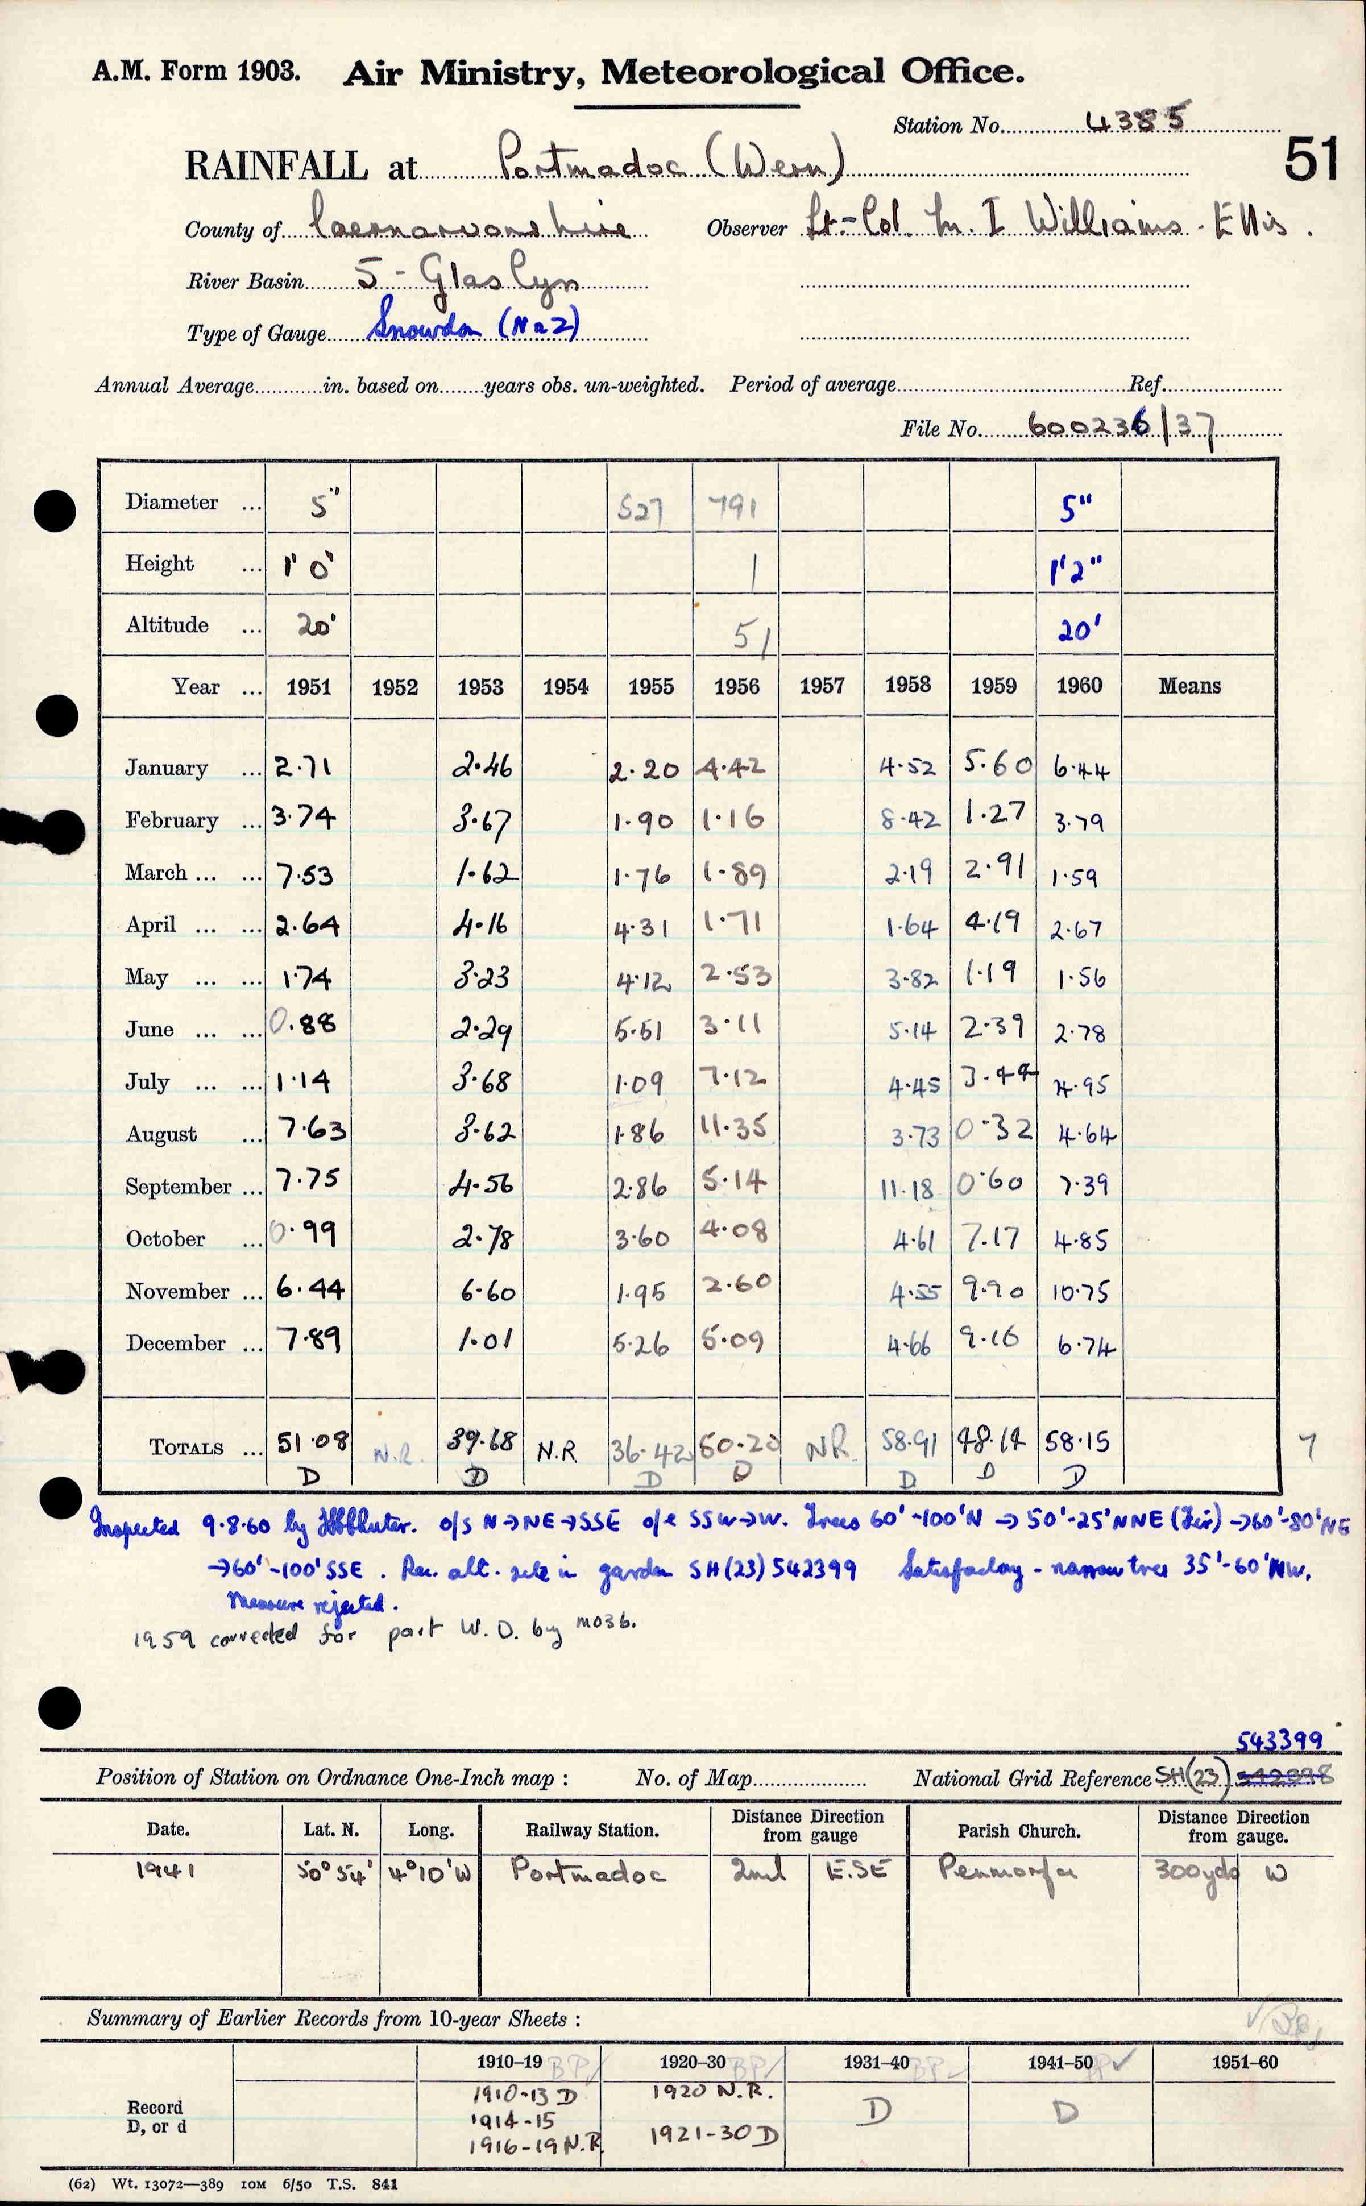 A.M. Form 1903. Air Ministry, Meteorological Office.
Station No. 4385
51
RAINFALL at Portmadoc (Wern)
County of Caernarvonshire Observer Lt.-Col. M. I Williams-Ellis.
River Basin 5 - Glaslyn
Type of Gauge Snowdon (No 2)
Annual Average in. based on years obs. un-weighted. Period of average Ref.
File No. 600236/37
Diameter ... 5" 527 791 5"
Height ... 1' 0" 1 1'2"
Altitude ... 20' 51 20'
Year ... 1951 1952 1953 1954 1955 1956 1957 1958 1959 1960 Means
January ... 2.71 2.46 2.20 4.42 4.52 5.60 6.44
February ... 3.74 3.67 1.90 1.16 8.42 1.27 3.79
March ... ... 7.53 1.62 1.76 1.89 2.19 2.91 1.59
April ... ... 2.64 4.16 4.31 1.71 1.64 4.19 2.67
May ... ... 1.74 3.23 4.12 2.53 3.82 1.19 1.56
June ... ... 0.88 2.29 5.51 3.11 5.14 2.39 2.78
July ... ... 1.14 3.68 1.09 7.12 4.45 3.44 4.95
August ... 7.63 3.62 1.86 11.35 3.73 0.32 4.64
September ... 7.75 4.56 2.86 5.14 11.18 0.60 7.39
October ... 0.99 2.78 3.60 4.08 4.61 7.17 4.85
November ... 6.44 6.60 1.95 2.60 4.55 9.90 10.75
December ... 7.89 1.01 5.26 5.09 4.66 9.16 6.74
TOTALS ... 51.08 N.R. 39.68 N.R 36.42 50.20 NR. 58.91 48.14 58.15 7
D D D D D D D
Inspected 9.8.60 by o/s N→NE→SSE o/e SSW→W. Trees 60'-100'N → 50'-25'NNE (Fir) →60'-80'NE
→60'-100'SSE. Rec. alt. site in garden SH(23)542399 Satisfactory - narrow tree 35'-60'NW.
Measure rejected.
1959 corrected for part W.D. by MO3b.
543399
Position of Station on Ordnance One-Inch map : No. of Map National Grid Reference SH(23) 542398
Date. Lat. N. Long. Railway Station. Distance from gauge Direction Parish Church. Distance from gauge. Direction
1941 50° 54' 4°10'W Portmadoc 2ml E.SE Penmorfa 300yds W
Summary of Earlier Records from 10-year Sheets :
1910–19 BP 1920–30 BP 1931–40 BP 1941–50 1951–60
Record D, or d
1910-13 D 1920 N.R. D D
1914-15
1916-19 N.R. 1921-30 D
(62) Wt. 13072—389 10M 6/50 T.S. 841